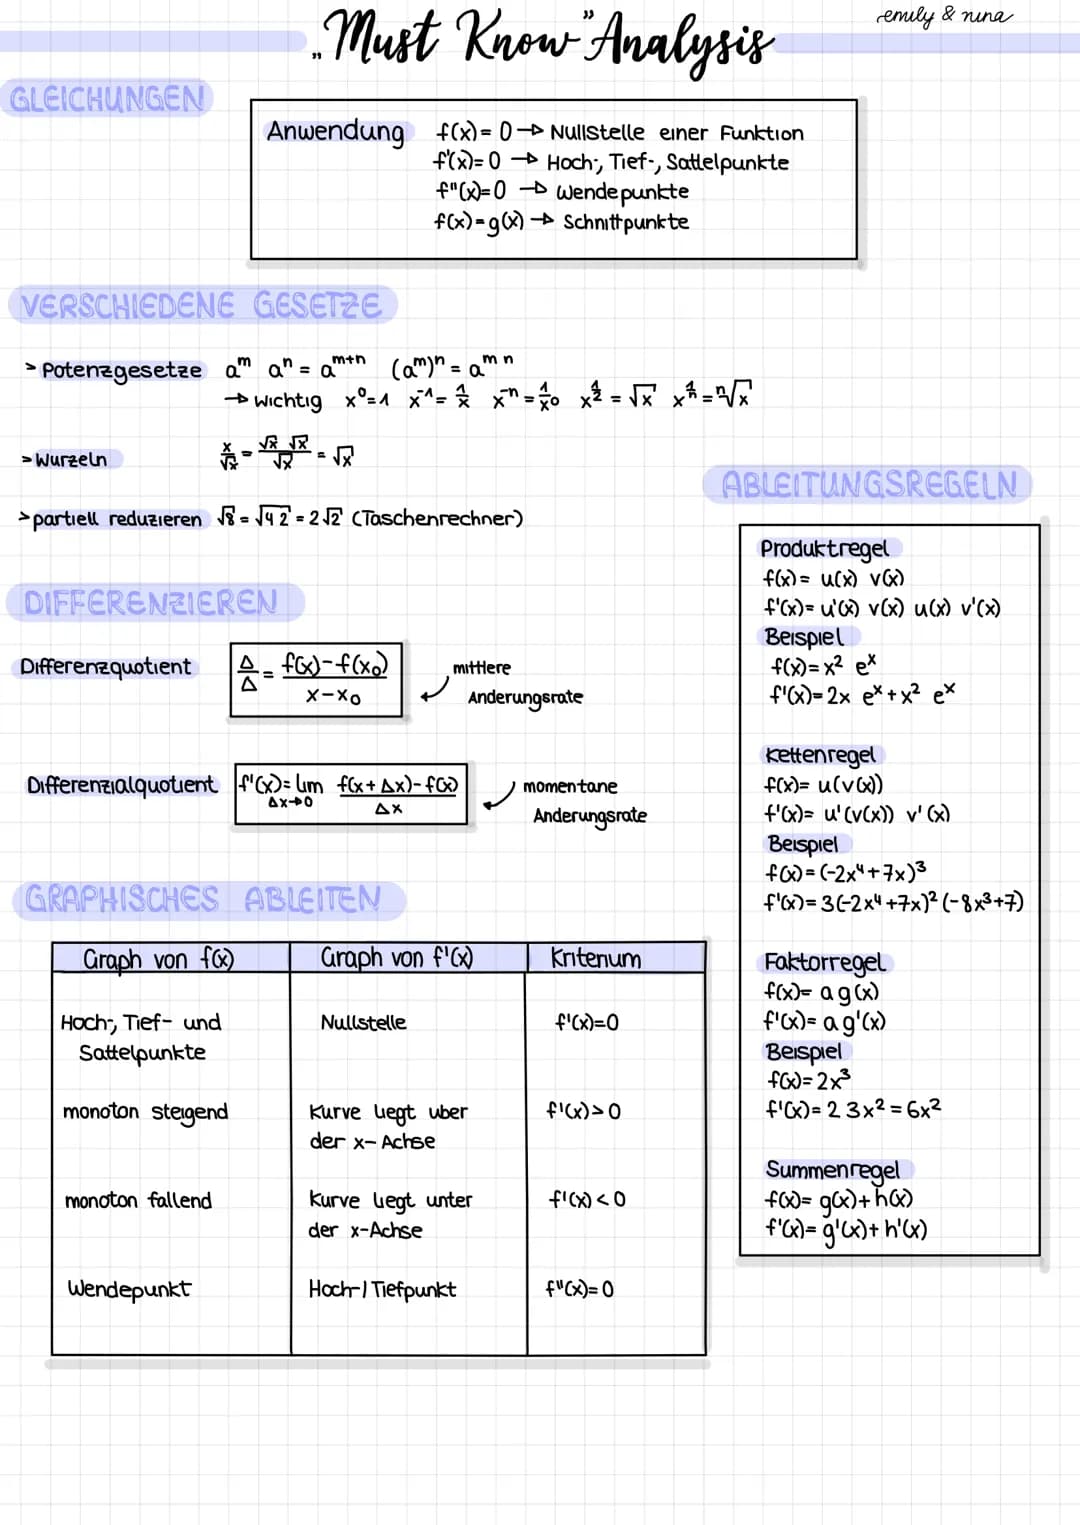 emily & nina
„Must Know" Analysis
GLEICHUNGEN
Anwendung f(x)= 0 → Nullstelle einer Funktion
f'(x)= 0 → Hoch-, Tief-, Sattelpunkte
f"(x)=0 → Wendepunkte
f(x)=g(x) → Schnittpunkte
VERSCHIEDENE GESETZE
> Potenzgesetze a^m a^n = a^m+n (a^m)^n = a^m n
→ Wichtig x^0=1 x^-1 = 1/x x^-n = 1/x^0 x^1/2 = √x x^1/n = ⁿ√x
> Wurzeln x/√x = √x √x/√x = √x
> partiell reduzieren √8 = √4 2 = 2√2 (Taschenrechner)
DIFFERENZIEREN
Differenzquotient Δ/Δ = f(x)-f(x₀)/x-x₀ mittlere
Anderungsrate
Differenzialquotient f'(x)= lim Δx→0 f(x+Δx)-f(x)/Δx momentane
Anderungsrate
GRAPHISCHES ABLEITEN
Graph von f(x) Graph von f'(x) Kriterium
Hoch-, Tief- und Nullstelle f'(x)=0
Sattelpunkte
monoton steigend Kurve liegt uber f'(x)>0
der x-Achse
monoton fallend Kurve liegt unter f'(x)<0
der x-Achse
Wendepunkt Hoch-/Tiefpunkt f"(x)=0
ABLEITUNGSREGELN
Produktregel
f(x)= u(x) v(x)
f'(x)= u'(x) v(x) u(x) v'(x)
Beispiel
f(x)=x² e^x
f'(x)=2x e^x + x² e^x
Kettenregel
f(x)= u(v(x))
f'(x)= u'(v(x)) v'(x)
Beispiel
f(x)=(-2x⁴+7x)³
f'(x)=3(-2x⁴+7x)²(-8x³+7)
Faktorregel
f(x)= a g(x)
f'(x)= a g'(x)
Beispiel
f(x)=2x³
f'(x)=2 3x²=6x²
Summenregel
f(x)= g(x)+h(x)
f'(x)= g'(x)+h'(x)